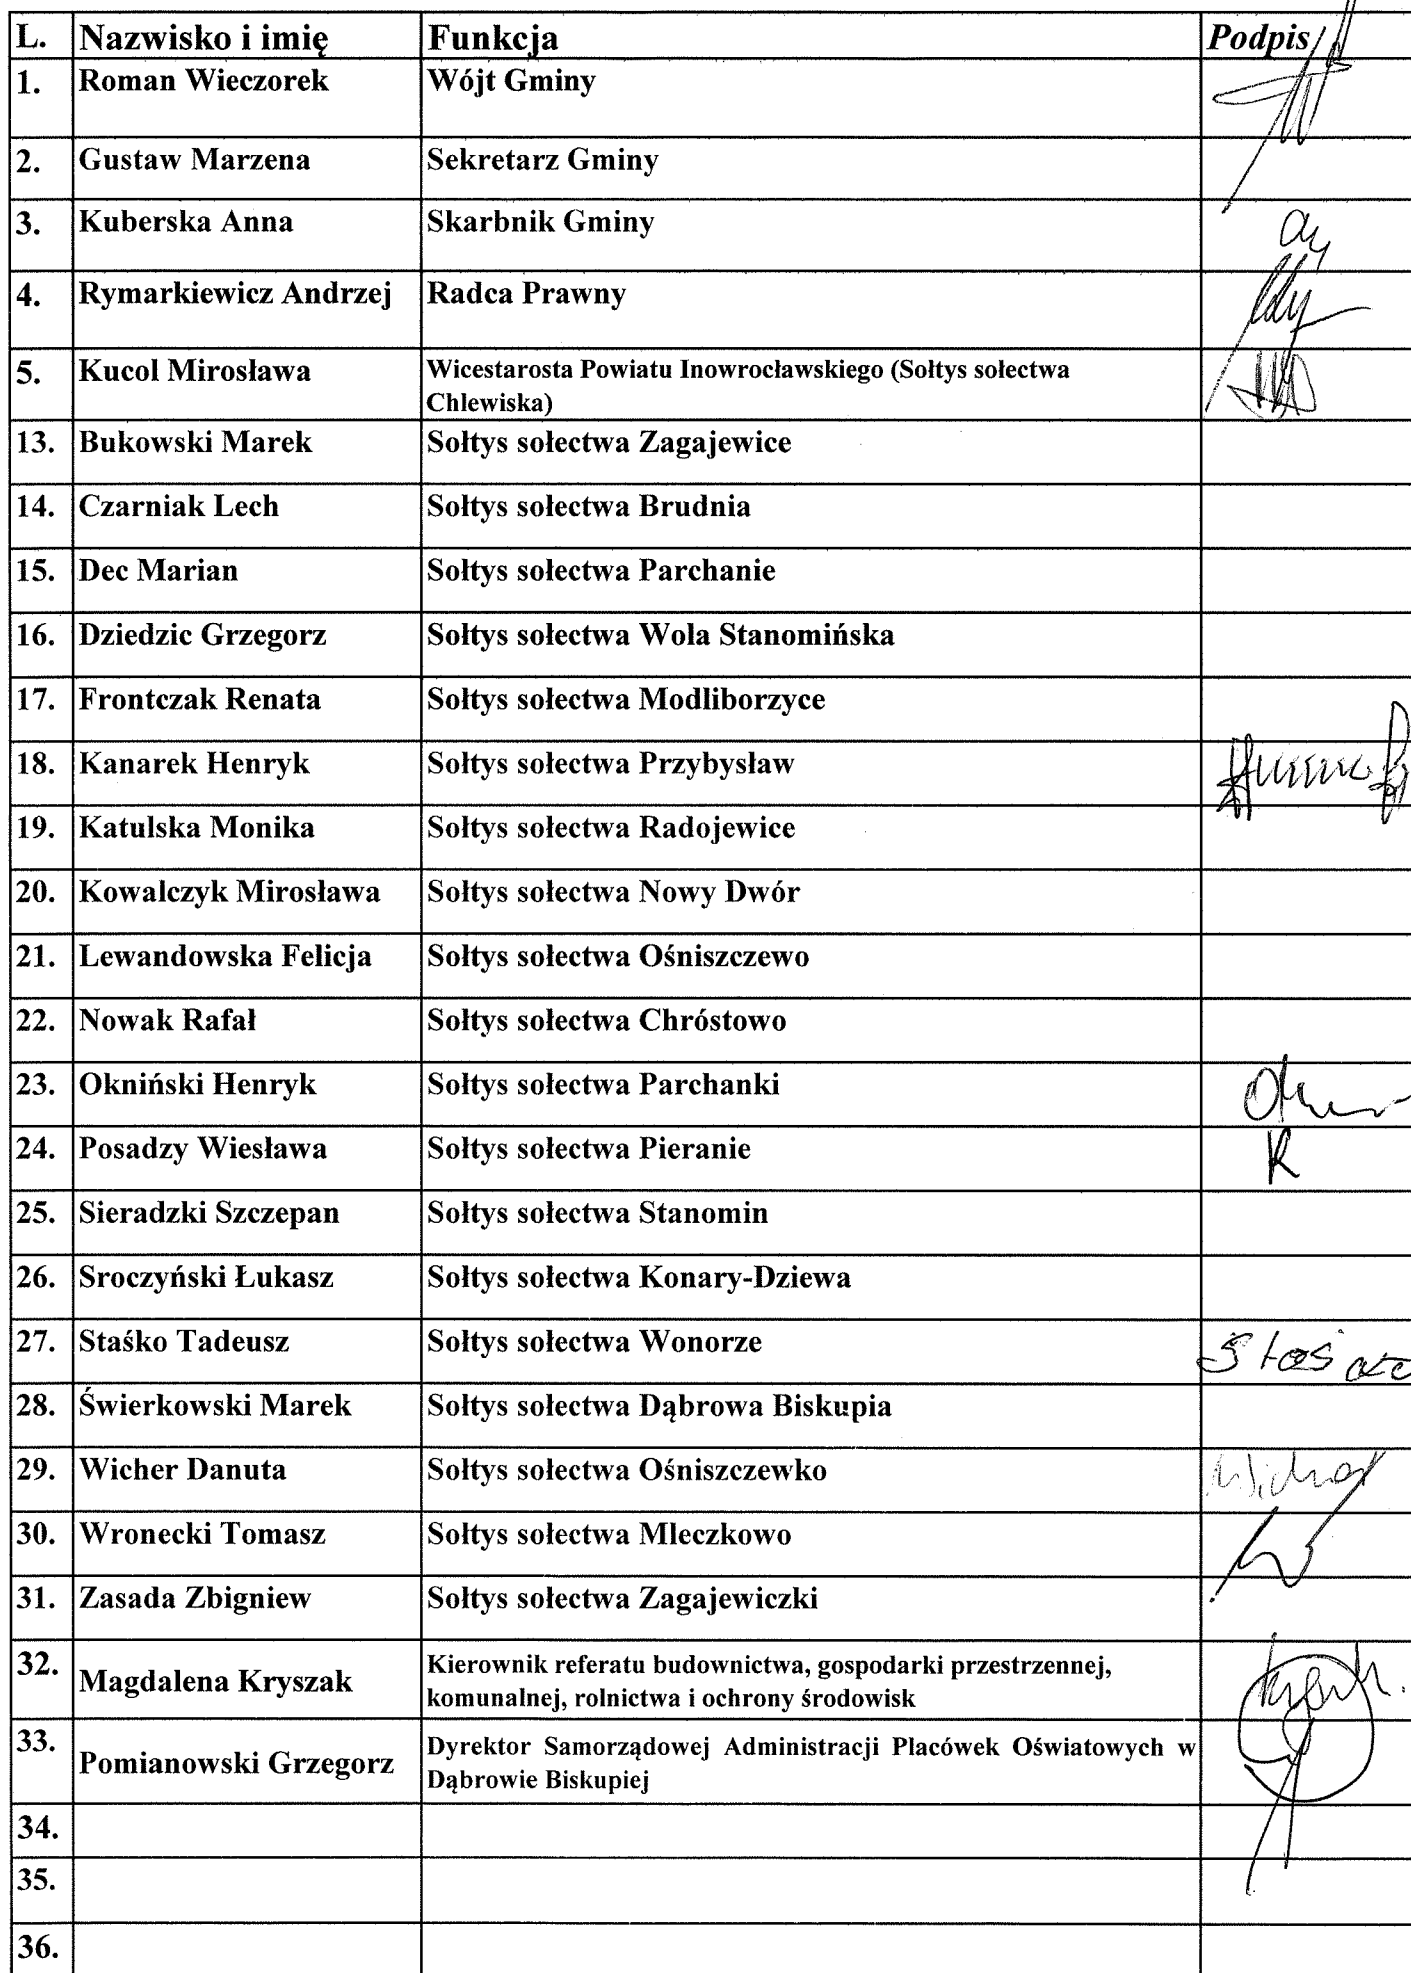 L. Nazwisko i imię Funkcja Podpis
1. Roman Wieczorek Wójt Gminy
2. Gustaw Marzena Sekretarz Gminy
3. Kuberska Anna Skarbnik Gminy
4. Rymarkiewicz Andrzej Radca Prawny
5. Kucol Mirosława Wicestarosta Powiatu Inowrocławskiego (Sołtys sołectwa
Chlewiska)
13. Bukowski Marek Sołtys sołectwa Zagajewice
14. Czarniak Lech Sołtys sołectwa Brudnia
15. Dec Marian Sołtys sołectwa Parchanie
16. Dziedzic Grzegorz Sołtys sołectwa Wola Stanomińska
17. Frontczak Renata Sołtys sołectwa Modliborzyce
18. Kanarek Henryk Sołtys sołectwa Przybysław
19. Katulska Monika Sołtys sołectwa Radojewice
20. Kowalczyk Mirosława Sołtys sołectwa Nowy Dwór
21. Lewandowska Felicja Sołtys sołectwa Ośniszczewo
22. Nowak Rafał Sołtys sołectwa Chróstowo
23. Okniński Henryk Sołtys sołectwa Parchanki
24. Posadzy Wiesława Sołtys sołectwa Pieranie
25. Sieradzki Szczepan Sołtys sołectwa Stanomin
26. Sroczyński Łukasz Sołtys sołectwa Konary-Dziewa
27. Staśko Tadeusz Sołtys sołectwa Wonorze
28. Świerkowski Marek Sołtys sołectwa Dąbrowa Biskupia
29. Wicher Danuta Sołtys sołectwa Ośniszczewko
30. Wronecki Tomasz Sołtys sołectwa Mleczkowo
31. Zasada Zbigniew Sołtys sołectwa Zagajewiczki
32. Magdalena Kryszak Kierownik referatu budownictwa, gospodarki przestrzennej,
komunalnej, rolnictwa i ochrony środowisk
33. Pomianowski Grzegorz Dyrektor Samorządowej Administracji Placówek Oświatowych w
Dąbrowie Biskupiej
34.
35.
36.